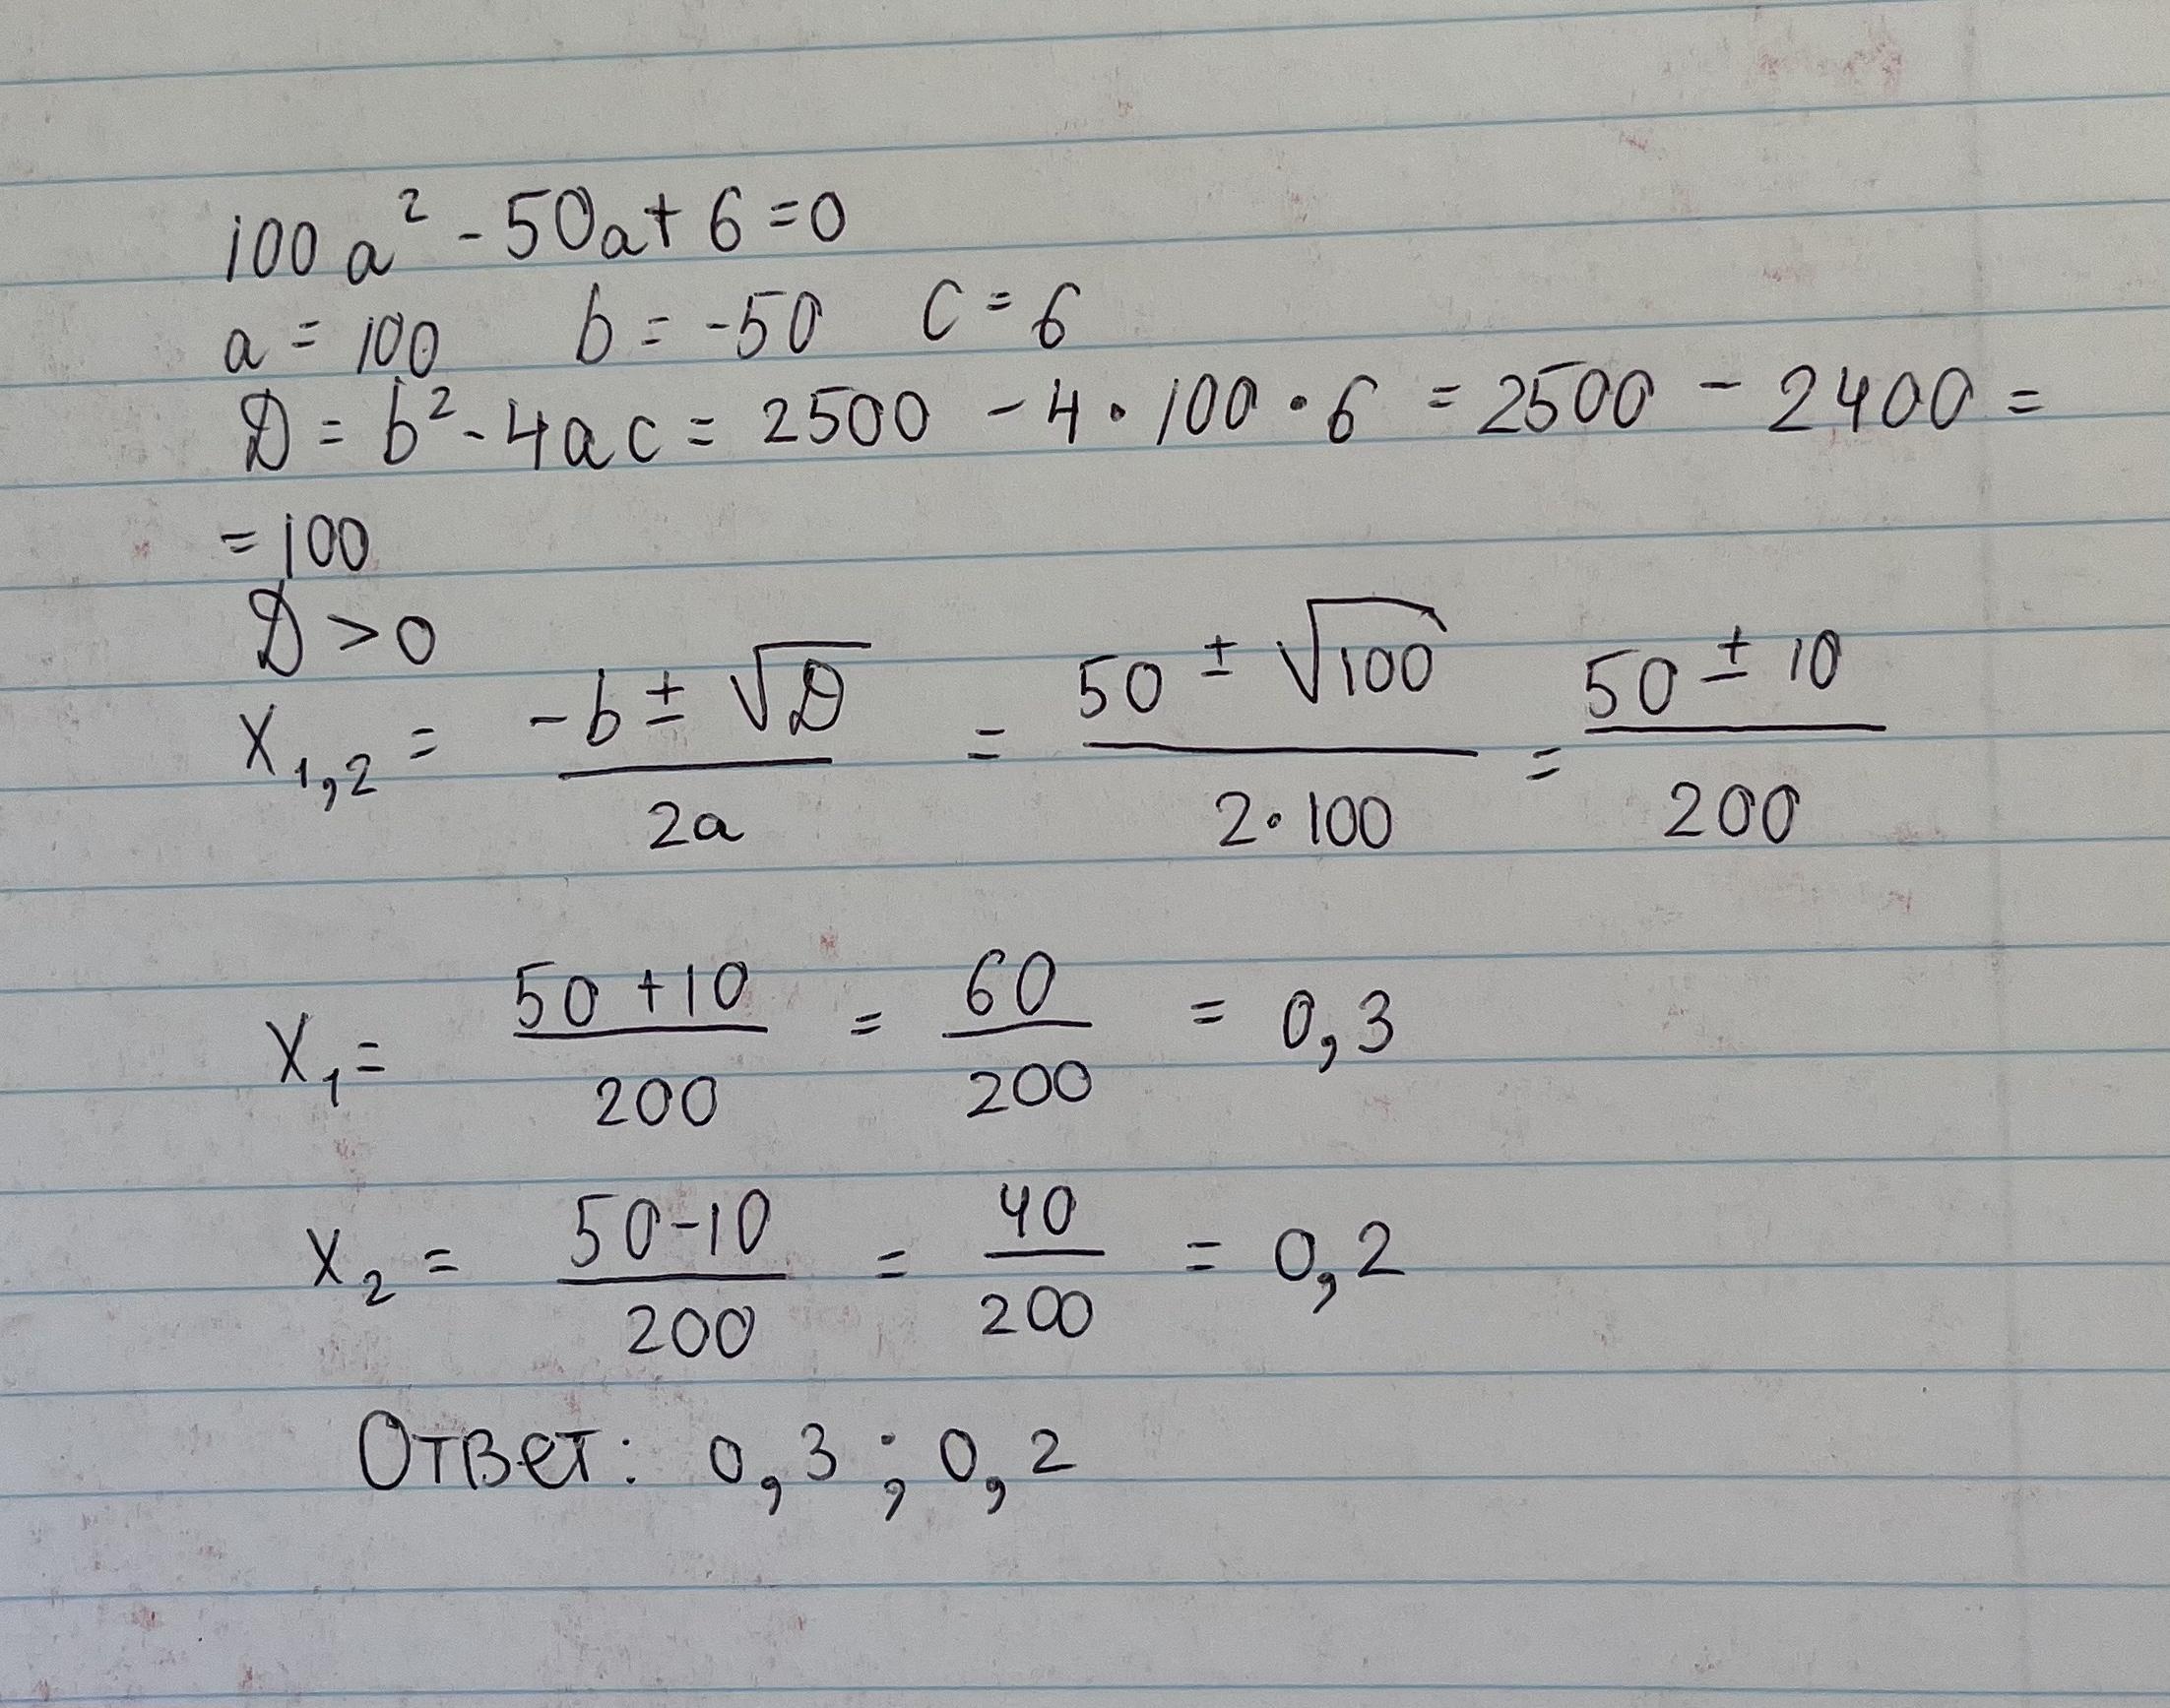 100a² - 50a + 6 = 0
a = 100 b = -50 c = 6
D = b² - 4ac = 2500 - 4 · 100 · 6 = 2500 - 2400 =
= 100
D > 0
x₁,₂ = (-b ± √D) / 2a = (50 ± √100) / (2 · 100) = (50 ± 10) / 200
x₁ = (50 + 10) / 200 = 60 / 200 = 0,3
x₂ = (50 - 10) / 200 = 40 / 200 = 0,2
Ответ: 0,3 ; 0,2